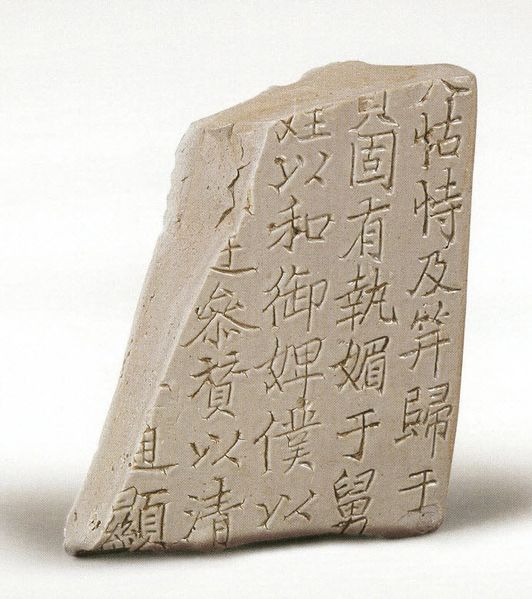 怙恃及笄歸于
固有執媚于舅
以和御婢僕以
叅賛以清
顯